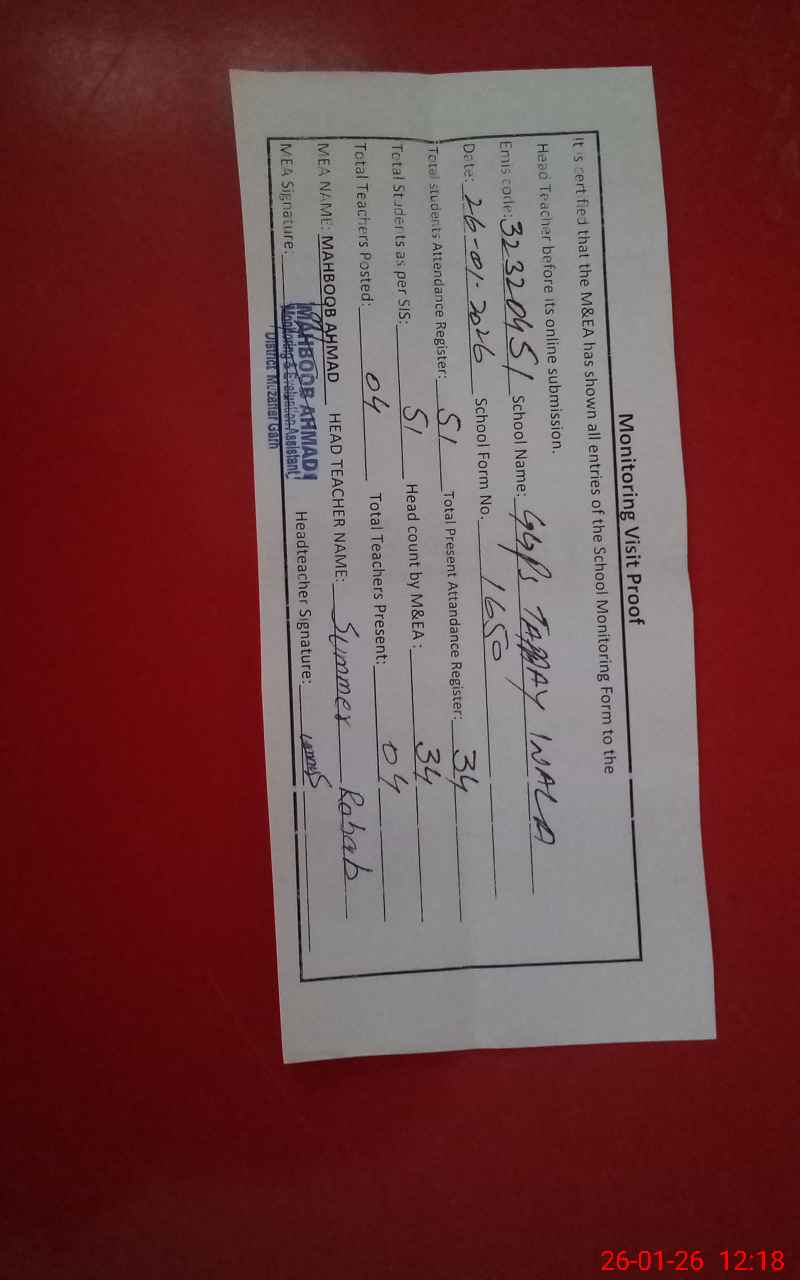 Monitoring Visit Proof
It is certified that the M&EA has shown all entries of the School Monitoring Form to the
Head Teacher before its online submission.
Emis code: 32320451 School Name: GGPS TABBAY WALA
Date: 26-01-2026 School Form No. 1650
Total students Attendance Register: 51 Total Present Attandance Register: 34
Total Students as per SIS: 51 Head count by M&EA: 34
Total Teachers Posted: 04 Total Teachers Present: 04
MEA NAME: MAHBOOB AHMAD HEAD TEACHER NAME: Summer Rabab
MEA Signature: Headteacher Signature:
MAHBOOB AHMAD
Monitoring & Evaluation Assistant
District Muzaffar Garh
26-01-26 12:18